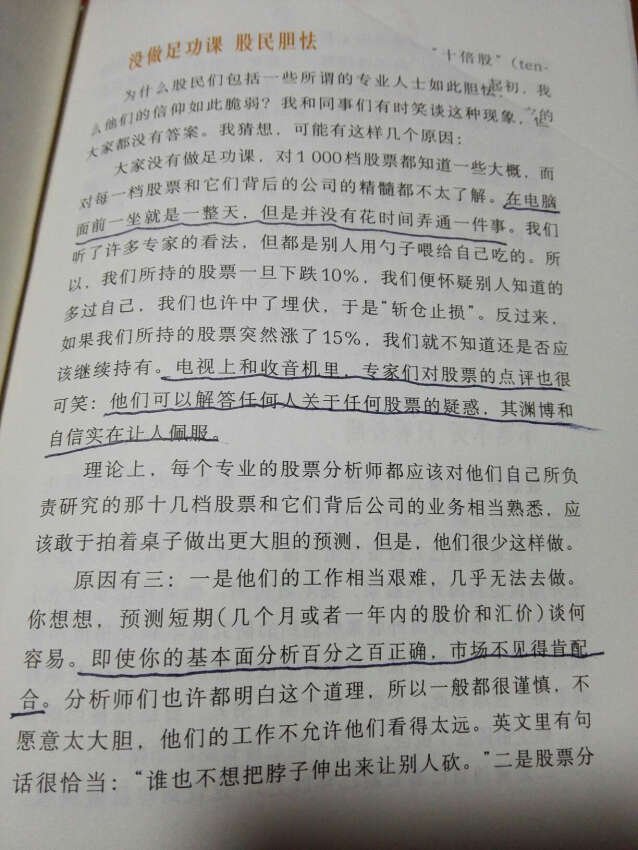 没做足功课 股民胆怯
“十倍股”(ten-
为什么股民们包括一些所谓的专业人士如此胆怯
起初，我
么他们的信仰如此脆弱？我和同事们有时笑谈这种现象，但
的
大家都没有答案。我猜想，可能有这样几个原因：
大家没有做足功课，对1000档股票都知道一些大概，而
对每一档股票和它们背后的公司的精髓都不太了解。在电脑
面前一坐就是一整天，但是并没有花时间弄通一件事。我们
听了许多专家的看法，但都是别人用勺子喂给自己吃的。所
以，我们所持的股票一旦下跌10%，我们便怀疑别人知道的
多过自己，我们也许中了埋伏，于是“斩仓止损”。反过来，
如果我们所持的股票突然涨了15%，我们就不知道还是否应
该继续持有。电视上和收音机里，专家们对股票的点评也很
可笑：他们可以解答任何人关于任何股票的疑惑，其渊博和
自信实在让人佩服。
理论上，每个专业的股票分析师都应该对他们自己所负
责研究的那十几档股票和它们背后公司的业务相当熟悉，应
该敢于拍着桌子做出更大胆的预测，但是，他们很少这样做。
原因有三：一是他们的工作相当艰难，几乎无法去做。
你想想，预测短期(几个月或者一年内的股价和汇价)谈何
容易。即使你的基本面分析百分之百正确，市场不见得肯配
合。分析师们也许都明白这个道理，所以一般都很谨慎，不
愿意太大胆，他们的工作不允许他们看得太远。英文里有句
话很恰当：“谁也不想把脖子伸出来让别人砍。”二是股票分